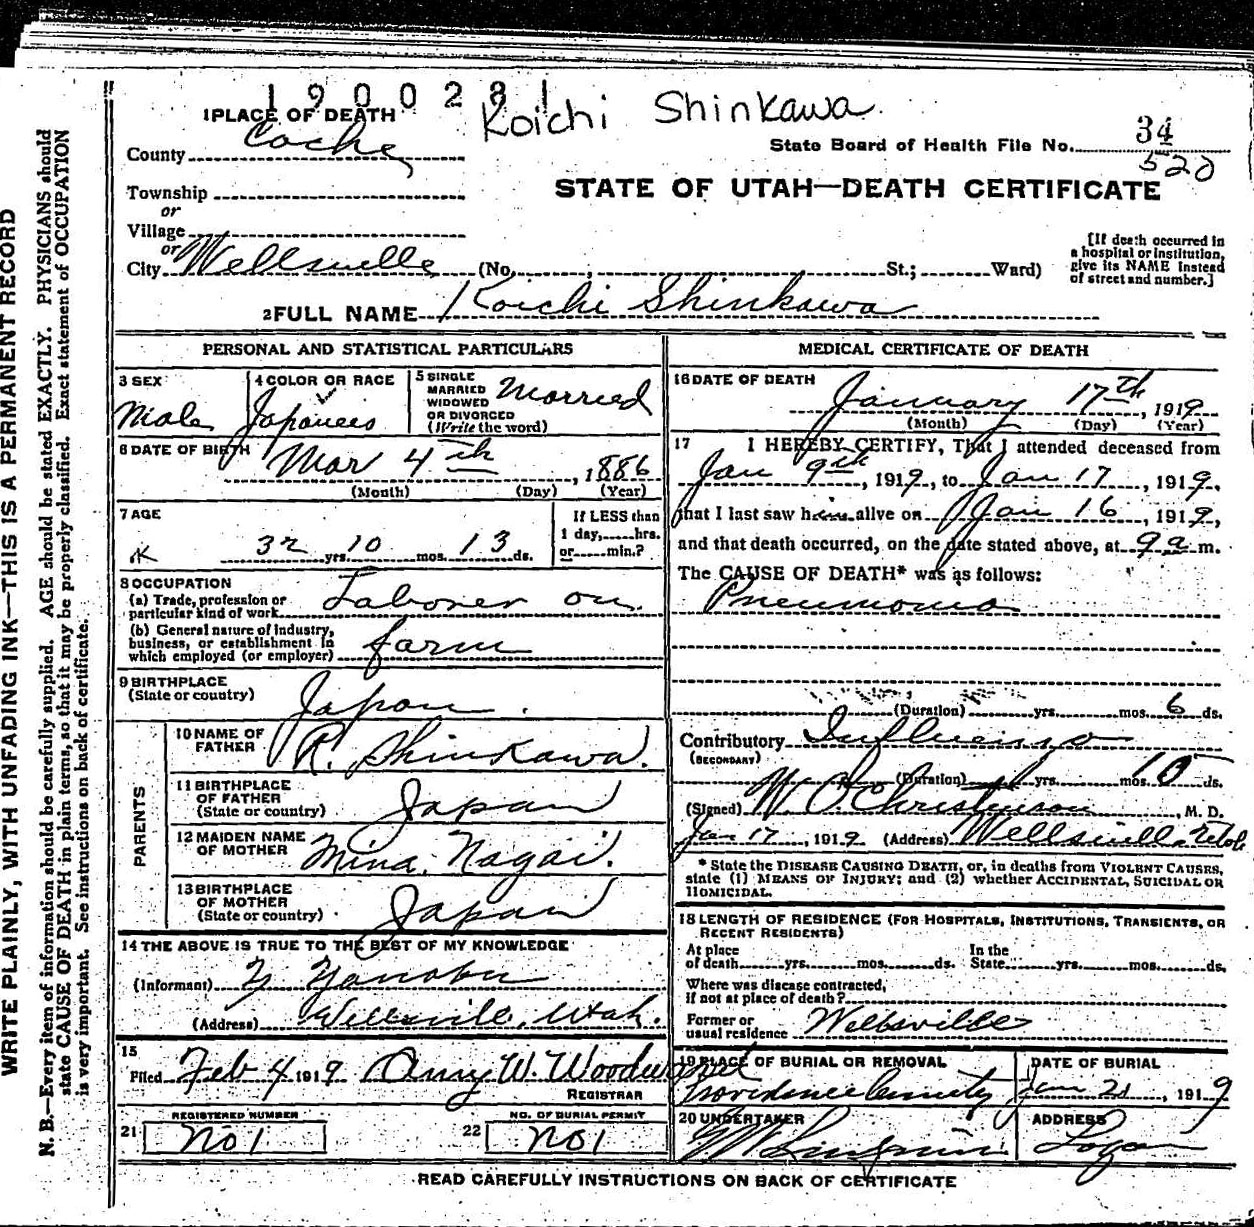 1900281
Koichi Shinkawa
1 PLACE OF DEATH
County Cache
State Board of Health File No. 34
520
Township
or
Village
or
City Wellsville (No. , St.; Ward)
STATE OF UTAH—DEATH CERTIFICATE
[If death occurred in
a hospital or institution,
give its NAME instead
of street and number.]
2 FULL NAME Koichi Shinkawa
PERSONAL AND STATISTICAL PARTICULARS
3 SEX
Male
4 COLOR OR RACE
Japanees
5 SINGLE
MARRIED
WIDOWED
OR DIVORCED
(Write the word)
Married
6 DATE OF BIRTH
Mar 4th, 1886
(Month) (Day) (Year)
7 AGE
32 yrs. 10 mos. 13 ds.
If LESS than
1 day, hrs.
or min.?
8 OCCUPATION
(a) Trade, profession or
particular kind of work Laborer on
(b) General nature of industry,
business, or establishment in
which employed (or employer) farm
9 BIRTHPLACE
(State or country)
Japan.
PARENTS
10 NAME OF
FATHER
R. Shinkawa.
11 BIRTHPLACE
OF FATHER
(State or country)
Japan
12 MAIDEN NAME
OF MOTHER
Mina. Nagai.
13 BIRTHPLACE
OF MOTHER
(State or country)
Japan
14 THE ABOVE IS TRUE TO THE BEST OF MY KNOWLEDGE
(Informant)
(Address) Wellsville, Utah.
15
Filed Feb 4 1919 Amy W. Woodward
REGISTRAR
REGISTERED NUMBER
21 No 1
NO. OF BURIAL PERMIT
22 No 1
MEDICAL CERTIFICATE OF DEATH
16 DATE OF DEATH
January 17th, 1919
(Month) (Day) (Year)
17 I HEREBY CERTIFY, That I attended deceased from
Jan 9th, 1919, to Jan 17, 1919,
that I last saw him alive on Jan 16, 1919,
and that death occurred, on the date stated above, at 9 a m.
The CAUSE OF DEATH* was as follows:
Pneumonia
(Duration) yrs. mos. 6 ds.
Contributory Influenza
(SECONDARY)
(Duration) yrs. mos. 10 ds.
(Signed) W. O. Christenson, M. D.
Jan 17, 1919 (Address) Wellsville Utah
* State the DISEASE CAUSING DEATH, or, in deaths from VIOLENT CAUSES,
state (1) MEANS OF INJURY; and (2) whether ACCIDENTAL, SUICIDAL OR
HOMICIDAL.
18 LENGTH OF RESIDENCE (FOR HOSPITALS, INSTITUTIONS, TRANSIENTS, OR
RECENT RESIDENTS)
At place
of death yrs. mos. ds.
In the
State yrs. mos. ds.
Where was disease contracted,
if not at place of death?
Former or
usual residence Wellsville
19 PLACE OF BURIAL OR REMOVAL
Providence Cemetery
DATE OF BURIAL
Jan 21, 1919
20 UNDERTAKER
ADDRESS
Logan
READ CAREFULLY INSTRUCTIONS ON BACK OF CERTIFICATE
WRITE PLAINLY, WITH UNFADING INK—THIS IS A PERMANENT RECORD
N. B.—Every item of information should be carefully supplied. AGE should be stated EXACTLY. PHYSICIANS should
state CAUSE OF DEATH in plain terms, so that it may be properly classified. Exact statement of OCCUPATION
is very important. See instructions on back of certificate.